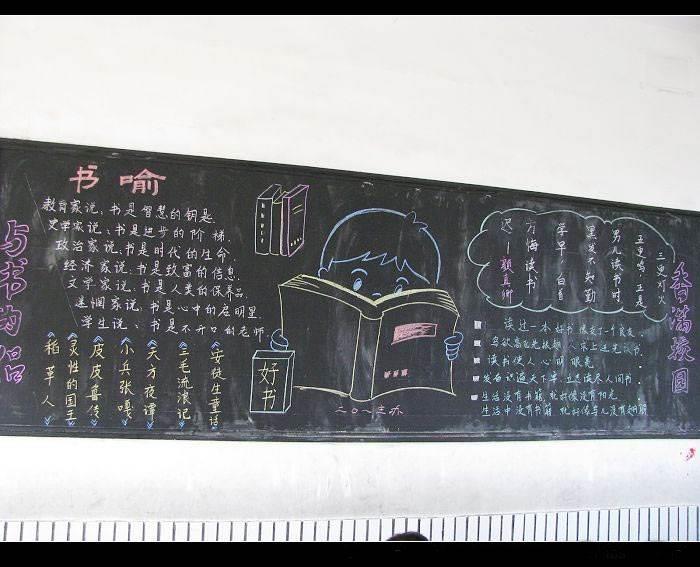 与书为侣
书喻
教育家说:书是智慧的钥匙.
史学家说:书是进步的阶梯.
政治家说:书是时代的生命.
经济家说:书是致富的信息.
文学家说:书是人类的保养品.
迷惘家说:书是心中的启明星.
学生说:书是不开口的老师.
《安徒生童话》
《三毛流浪记》
《天才夜谭》
《小兵张嘎》
《皮皮鲁传》
《灵性的国王》
《稻草人》
好书
主办
三更灯火
五更鸡,正是
男儿读书时
黑发不知勤
学早 白首
方悔读书
迟!颜真卿
读过一本好书,像交了一个益友.
鸟欲高飞先振翅,人求上进先读书.
读书使人心明眼亮.
发奋识遍天下字,立志读尽人间书.
生活没有书籍,就好像没有阳光.
生活中没有书籍,就好像鸟儿没有翅膀
香满校园